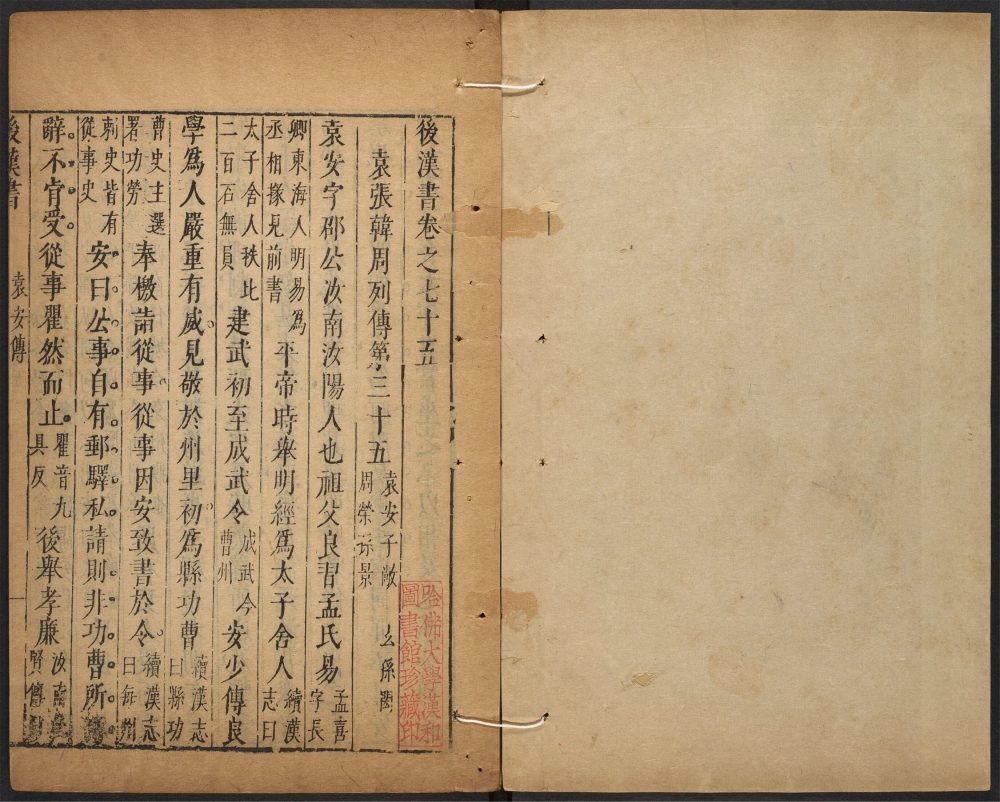 後漢書卷之七十五
袁張韓周列傳第三十五 袁安子敞 玄孫閎 周榮孫景
袁安字邵公汝南汝陽人也祖父良習孟氏易 孟喜字長
卿東海人明易為丞相掾見前書 平帝時舉明經為太子舍人 續漢志曰
太子舍人秩比二百石無員 建武初至成武令 成武今曹州 安少傳良
學為人嚴重有威見敬於州里初為縣功曹 續漢志曰縣功
曹史主選署功勞 奉檄詣從事從事因安致書於令 續漢志曰每州
刺史皆有從事史 安曰公事自有郵驛私請則非功曹所
辭不肯受從事瞿然而止 瞿音九具反 後舉孝廉 汝南賢傳
後漢書 袁安傳
哈佛大學漢和圖書館珍藏印